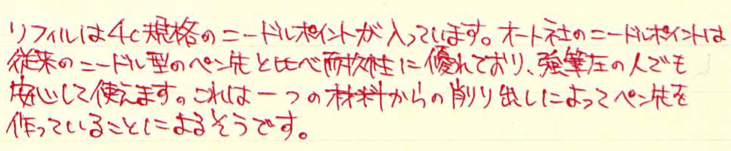 リフィルは4c規格のニードルポイントが入っています。オート社のニードルポイントは
従来のニードル型のペン先と比べ耐久性に優れており、強筆圧の人でも
安心して使えます。これは一つの材料からの削り出しによってペン先を
作っていることによるそうです。